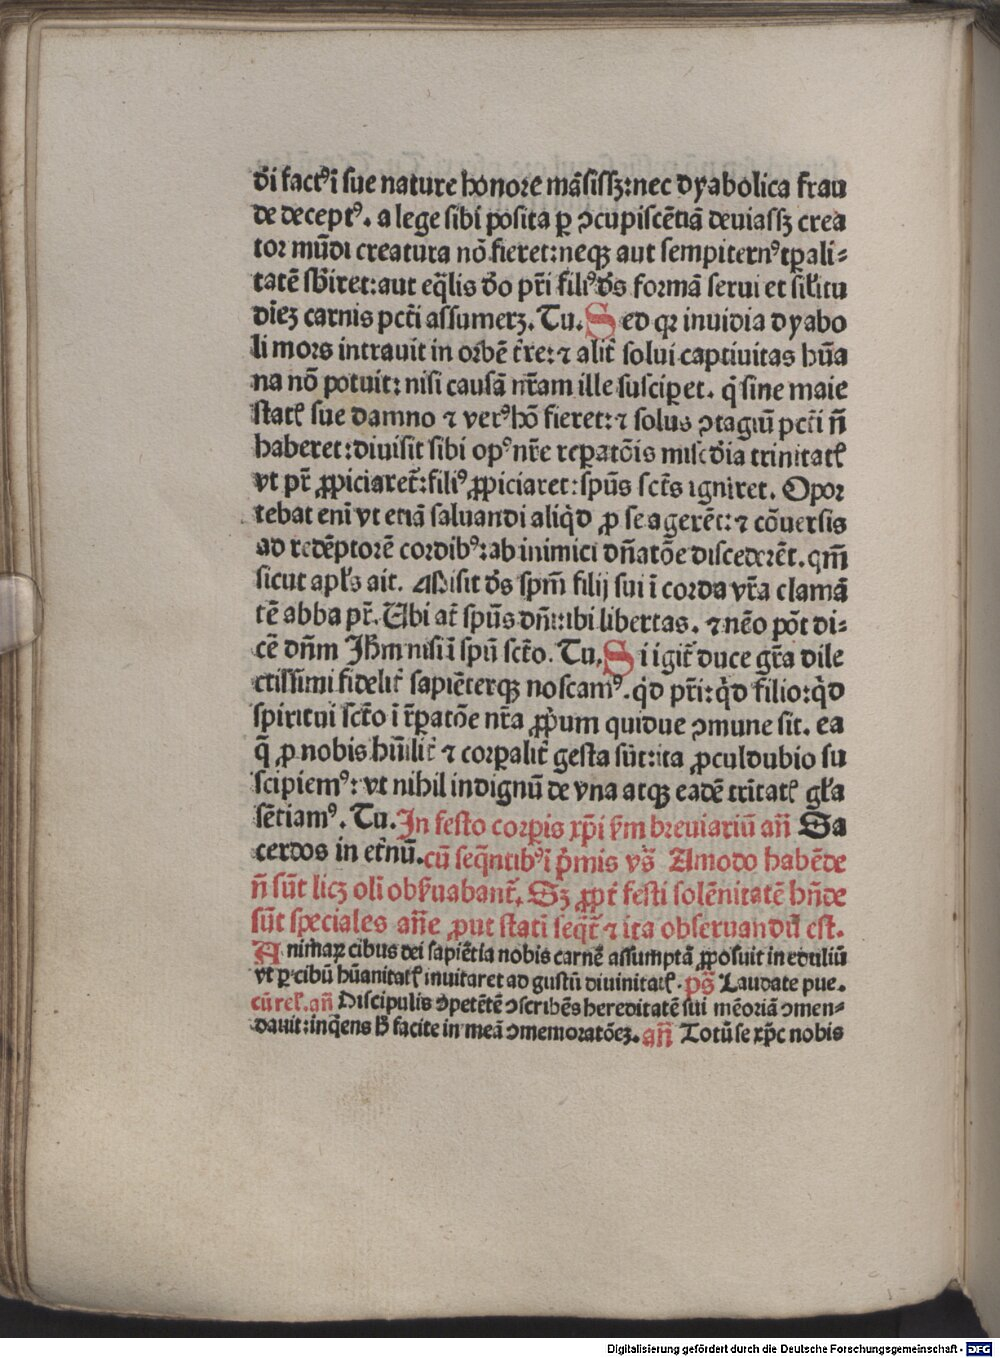 di factꝰ ī sue nature honore mãsissꝫ: nec dyabolica frau
de deceptꝰ. a lege sibi posita ꝑ ↄcupiscētiā deuiassꝫ crea
tor mūdi creatura nō fieret: neqꝫ aut sempiternꝰ tꝑali⸗
tatē sbiret: aut eq̄lis dō pr̄i filiꝰ dꝰs formā serui et silitu
dīeꝫ carnis pctī assumerꝫ. Tu. Sed qꝛ inuidia dyabo
li mors intrauit in orbē tr̄re: ⁊ alit̄ solui captiuitas hūa
na nō potuit: nisi causā nr̄am ille susciꝑet. q̇ sine maie
statꝭ sue damno ⁊ verꝰ hō fieret: ⁊ solus ↄtagiū pctī n̄
haberet: diuisit sibi opꝰ nr̄e reꝑatōis misc̄dia trinitatꝭ
vt pr̄ ꝓpiciaret̄: filiꝰ ꝓpiciaret: spūs sct̄s igniret. Opor
tebat enī vt etiā saluandi aliq̇d ꝓ se agerēt: ⁊ cōuersis
ad redēptorē cordibꝰ: ab inimici dn̄atōe discederēt. qm̄
sicut apl's ait. Misit dꝰs spm̄ filij sui ī corda vr̄a clamā
tē abba pr̄. Ubi at̄ spūs dn̄i: ibi libertas. ⁊ nēo pōt di⸗
cē dn̄m Jhm nisi ī spū sctō. Tu. Si igit̄ duce gr̄a dile
ctissimi fidelit̄ sapiēterqꝫ noscamꝰ. q̇d pr̄i: q̇d filio: q̇d
spiritui sctō ī r̄ꝑatōe nr̄a ꝓpum quidue ↄmune sit. ea
q̄ ꝓ nobis hūilit̄ ⁊ corꝑalit̄ gesta sūt: ita ꝓculdubio su
scipiemꝰ: vt nihil indignū de vna atqꝫ eadē trītatꝭ gl'a
sētiamꝰ. Tu. In festo corꝑis xp̄i ẜm breuiariū an̄ Sa
cerdos in et̄nū. cū seq̄ntibꝰ ī p̄mis vs̄ Amodo habēde
n̄ sūt licꝫ oli obẜuabant̄. Sꝫ ꝓpt̄ festi solēnitatē hn̄de
sūt speciales an̄e ꝓut statī seqt̄ ⁊ ita obseruandū est.
Animaꝝ cibus dei sapiētia nobis carnē assumptā ꝓposuit in eduliū
vt ꝑ cibū hūanitatꝭ inuitaret ad gustū diuinitatꝭ. ps̄ Laudate pue.
cū relꝭ. an̄ Discipulis ↄpetētē ↄscribēs hereditatē sui mēoriā ↄmen⸗
dauit: inq̇ens h̄ facite in meā ↄmemoratōeꝫ. an̄ Totū se xp̄c nobis
Digitalisierung gefördert durch die Deutsche Forschungsgemeinschaft - DFG